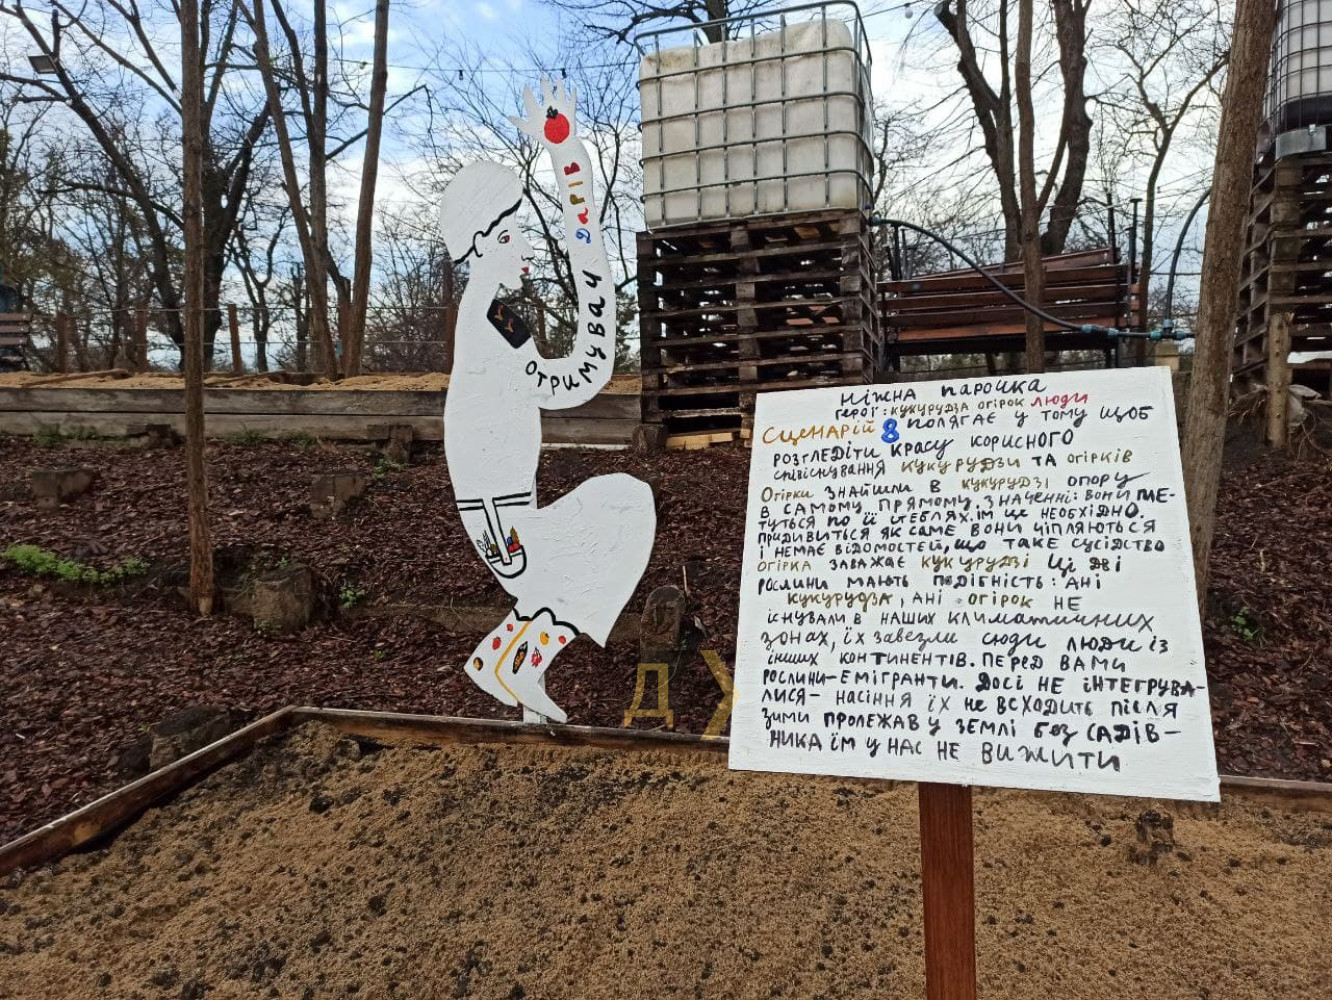 отримувач
Дарів
ніжна парочка
герої: кукурудза огірок люди
Сценарій 8 полягає у тому щоб
розгледіти красу корисного
співіснування кукурудзи та огірків
Огірки знайшли в кукурудзі опору
в самому прямому значенні: вони пле-
туться по її стеблях. Їм це необхідно.
придивиться як саме вони чіпляються
і немає відомостей, що таке сусідство
огірка заважає кукурудзі Ці дві
рослини мають подібність: ані
кукурудза, ані огірок не
існували в наших климатичних
зонах, їх завезли сюди люди із
інших континентів. перед вами
рослини-емігранти. Досі не інтегрува-
лися- насіння їх не всходить після
зими пролежав у землі без садів-
ника їм у нас не вижити
Д